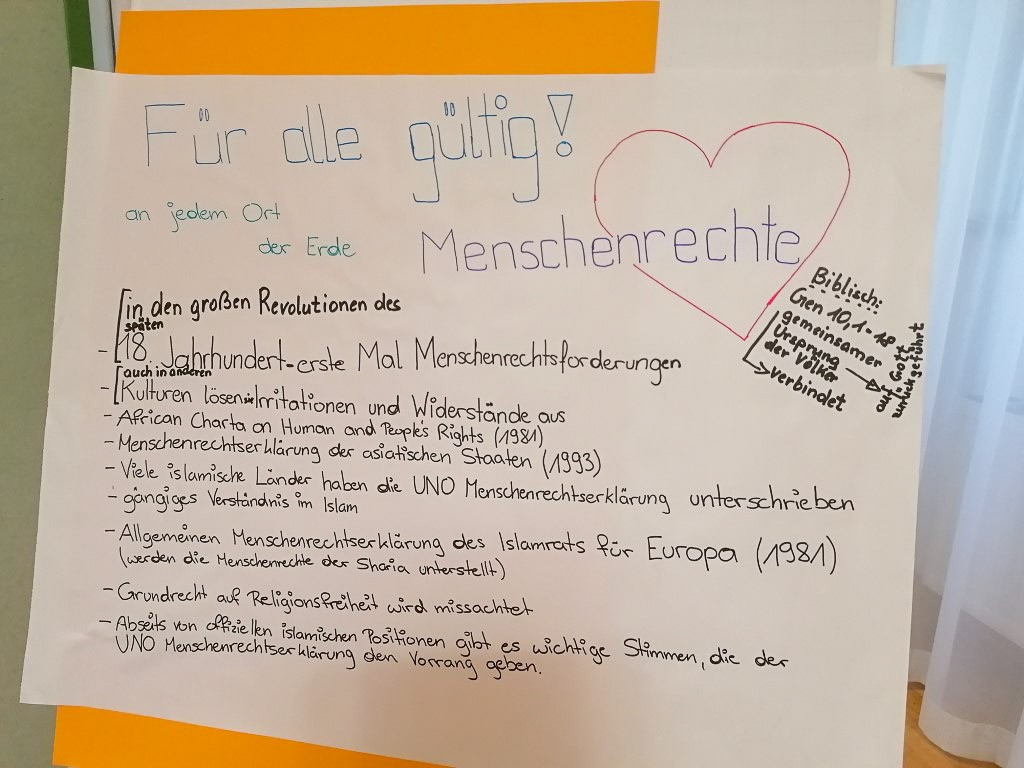 Für alle gültig!
an jedem Ort
der Erde
Menschenrechte
Biblisch:
Gen 10,1-18
gemeinsamer
Ursprung
der Völker
verbindet
auf Gott
zurückgeführt
in den großen Revolutionen des
späten
- 18. Jahrhundert-erste Mal Menschenrechtsforderungen
auch in anderen
- Kulturen lösen sie Irritationen und Widerstände aus
- African Charta on Human and People's Rights (1981)
- Menschenrechtserklärung der asiatischen Staaten (1993)
- Viele islamische Länder haben die UNO Menschenrechtserklärung unterschrieben
- gängiges Verständnis im Islam
- Allgemeinen Menschenrechtserklärung des Islamrats für Europa (1981)
(werden die Menschenrechte der Sharia unterstellt)
- Grundrecht auf Religionsfreiheit wird missachtet
- Abseits von offiziellen islamischen Positionen gibt es wichtige Stimmen, die der
UNO Menschenrechtserklärung den Vorrang geben.